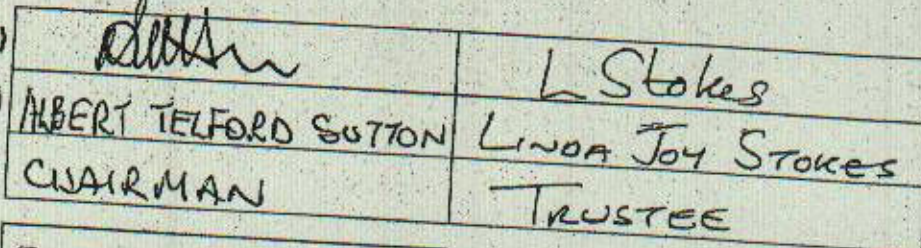 L Stokes
ALBERT TELFORD SUTTON LINDA JOY STOKES
CHAIRMAN TRUSTEE